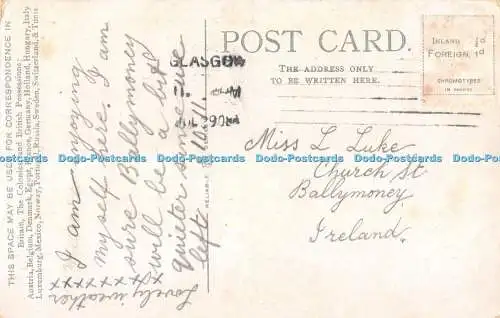 THIS SPACE MAY BE USED FOR CORRESPONDENCE IN
Britain, The Colonies and British Possessions:
Austria, Belgium, Denmark, Egypt, France, Germany, Holland, Hungary, Italy
Luxemburg, Mexico, Norway, Portugal, Russia, Sweden, Switzerland, & Tunis
I am enjoying
myself here. I am
sure Ballymoney
will be a bit
quieter since we
left
Lovely weather
xxxxxxxx
POST CARD.
THE ADDRESS ONLY
TO BE WRITTEN HERE.
INLAND ½d
FOREIGN, 1d
CHROMOTYPED
IN SAXONY
GLASGOW
JUL 29
11
RELIABLE
Miss L Luke
Church St
Ballymoney
Ireland.
Dodo-Postcards Dodo-Postcards Dodo-Postcards Dodo-Postcards Dodo-Postcards